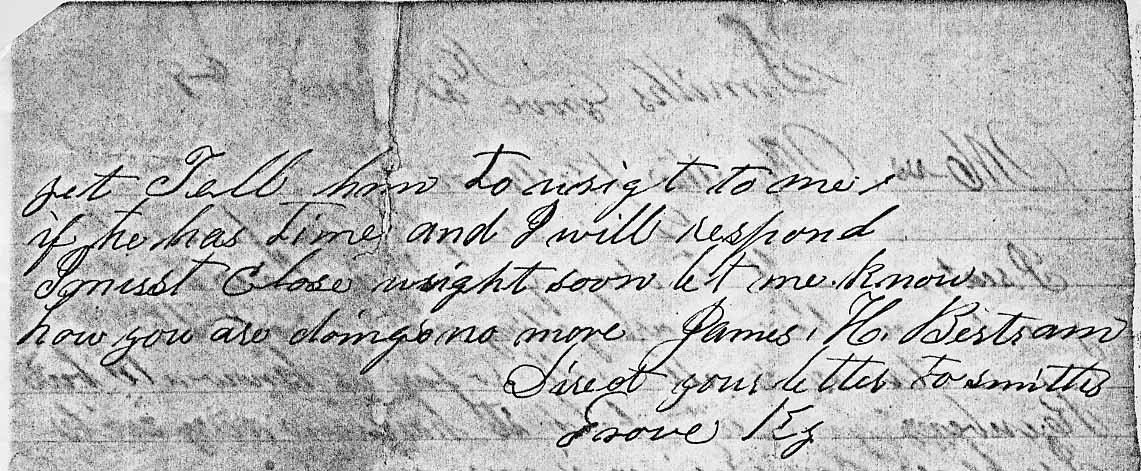 yet Tell him to wright to me
if he has time and I will respond
I must Close wright soon let me know
how you are doing no more James. H. Bertram
Direct your letter to smiths
Grove Ky